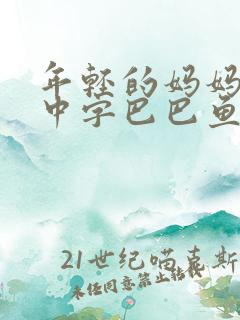 年轻的妈妈
中字巴巴鱼
21世纪喵喜斯
未经同意禁止转载